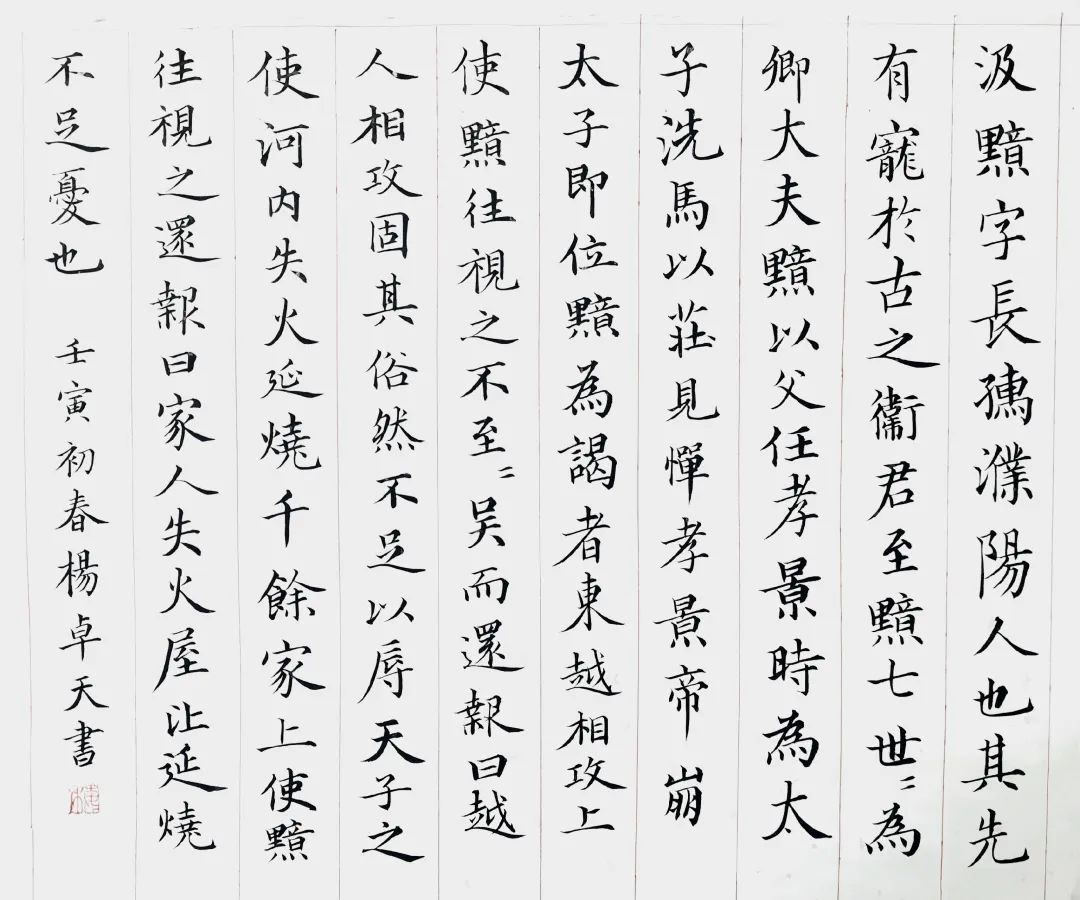 汲黯字長孺濮陽人也其先
有寵於古之衞君至黯七世〻為
卿大夫黯以父任孝景時為太
子洗馬以莊見憚孝景帝崩
太子即位黯為謁者東越相攻上
使黯往視之不至〻吳而還報曰越
人相攻固其俗然不足以辱天子之
使河内失火延燒千餘家上使黯
往視之還報曰家人失火屋比延燒
不足憂也 壬寅初春楊卓天書